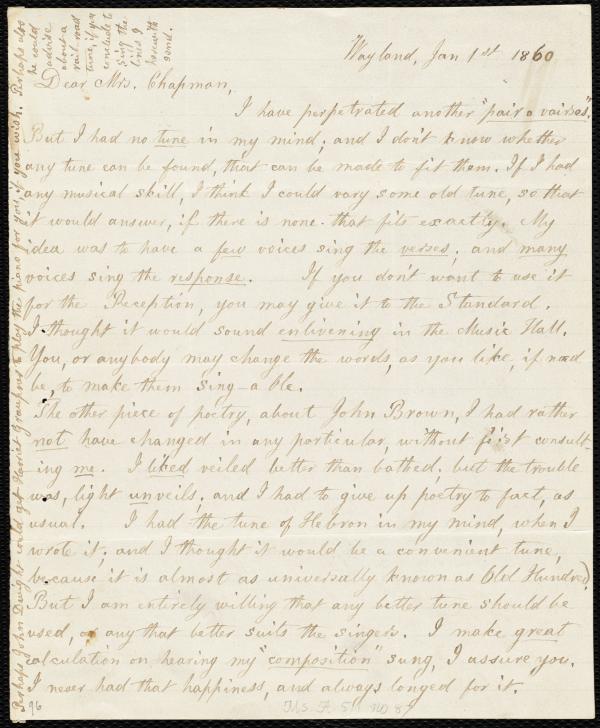 Wayland, Jan 1st 1860
Dear Mrs. Chapman,
I have perpetrated another "pair o vairses".
But I had no tune in my mind; and I don't know whether
any tune can be found, that can be made to fit them. If I had
any musical skill, I think I could vary some old tune, so that
it would answer, if there is none that fits exactly. My
idea was to have a few voices sing the verses, and many
voices sing the response. If you don't want to use it
for the Reception, you may give it to the Standard.
I thought it would sound enlivening in the Music Hall.
You, or anybody may change the words, as you like, if need
be, to make them sing-able.
The other piece of poetry, about John Brown, I had rather
not have changed in any particular, without first consult-
ing me. I liked veiled better than bathed; but the trouble
was, light unveils, and I had to give up poetry to fact, as
usual. I had the tune of Hebron in my mind, when I
wrote it; and I thought it would be a convenient tune,
because it is almost as universally known as Old Hundred.
But I am entirely willing that any better tune should be
used, or any that better suits the singers. I make great
calculation on hearing my "composition" sung, I assure you.
I never had that happiness, and always longed for it.
Perhaps John Dwight could get Harriet Graupner to play the piano for you, if you wish. Perhaps also
he could
advise
about a
rail road
tune, if you
conclude to
sing the
lines I
herewith
send.
96